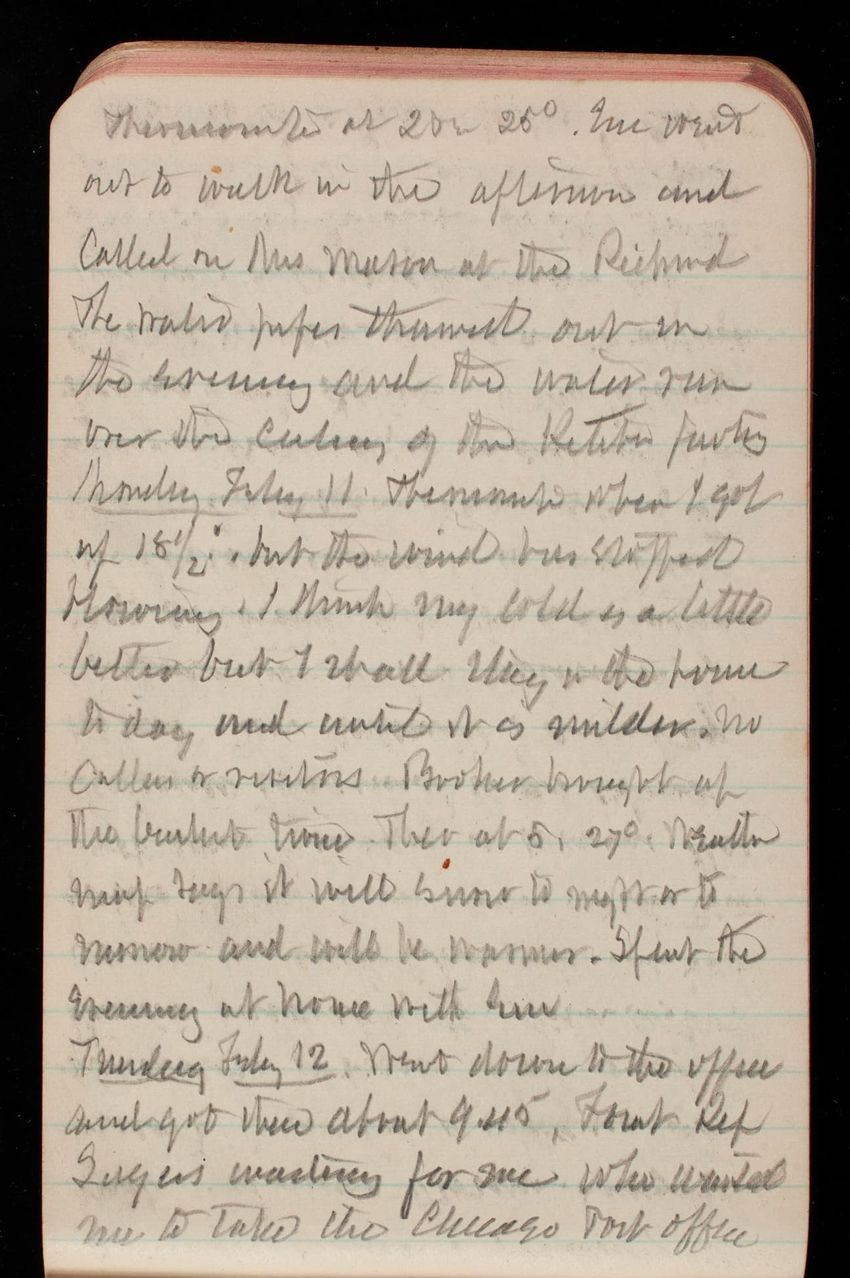 Thermomter at 2 Dr 25°. Eve went
out to walk in the afternoon and
Called on Mrs Mason at the Richmd
The water pipes thawed out in
the evening and the water run
over the ceiling of the Kitchen
Monday Feby 11 Thermomtr when I got
up 18 1/2°. but the wind has stopped
blowing. I think my cold is a little
better but I shall stay in the house
to day and until it is milder. No
Callers or visitors. Booker brought up
the basket twice. Ther at 5, 27°. Weather
map says it will snow to night or to
morrow and will be warmer. Spent the
Evening at home with Eve
Tuesday Feby 12. Went down to the office
and got there about 9.45, Found Rep
waiting for me who wanted
me to take the Chicago Post office